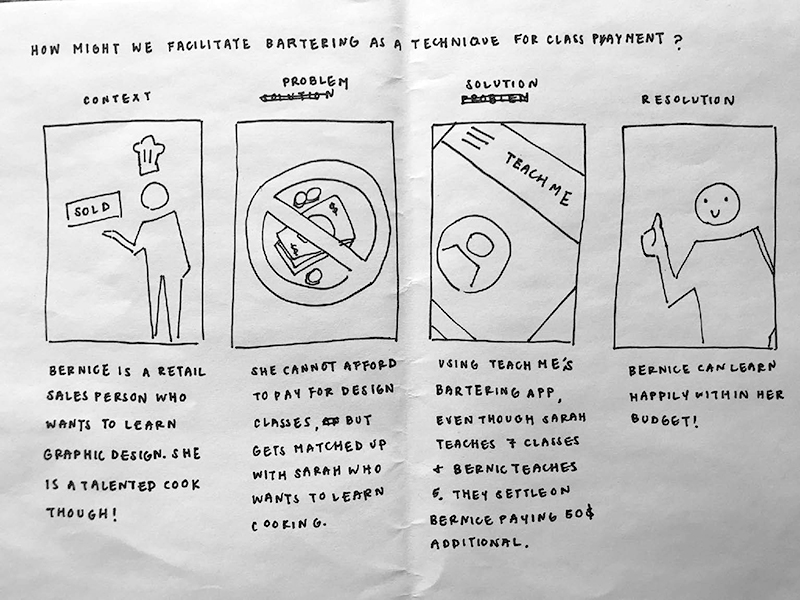 HOW MIGHT WE FACILITATE BARTERING AS A TECHNIQUE FOR CLASS PAYMENT?
CONTEXT
SOLD
BERNICE IS A RETAIL
SALES PERSON WHO
WANTS TO LEARN
GRAPHIC DESIGN. SHE
IS A TALENTED COOK
THOUGH!
PROBLEM
SOLUTION
SHE CANNOT AFFORD
TO PAY FOR DESIGN
CLASSES, BUT
GETS MATCHED UP
WITH SARAH WHO
WANTS TO LEARN
COOKING.
SOLUTION
PROBLEM
TEACH ME
USING TEACH ME'S
BARTERING APP,
EVEN THOUGH SARAH
TEACHES 7 CLASSES
+ BERNIC TEACHES
5. THEY SETTLE ON
BERNICE PAYING 50$
ADDITIONAL.
RESOLUTION
BERNICE CAN LEARN
HAPPILY WITHIN HER
BUDGET!